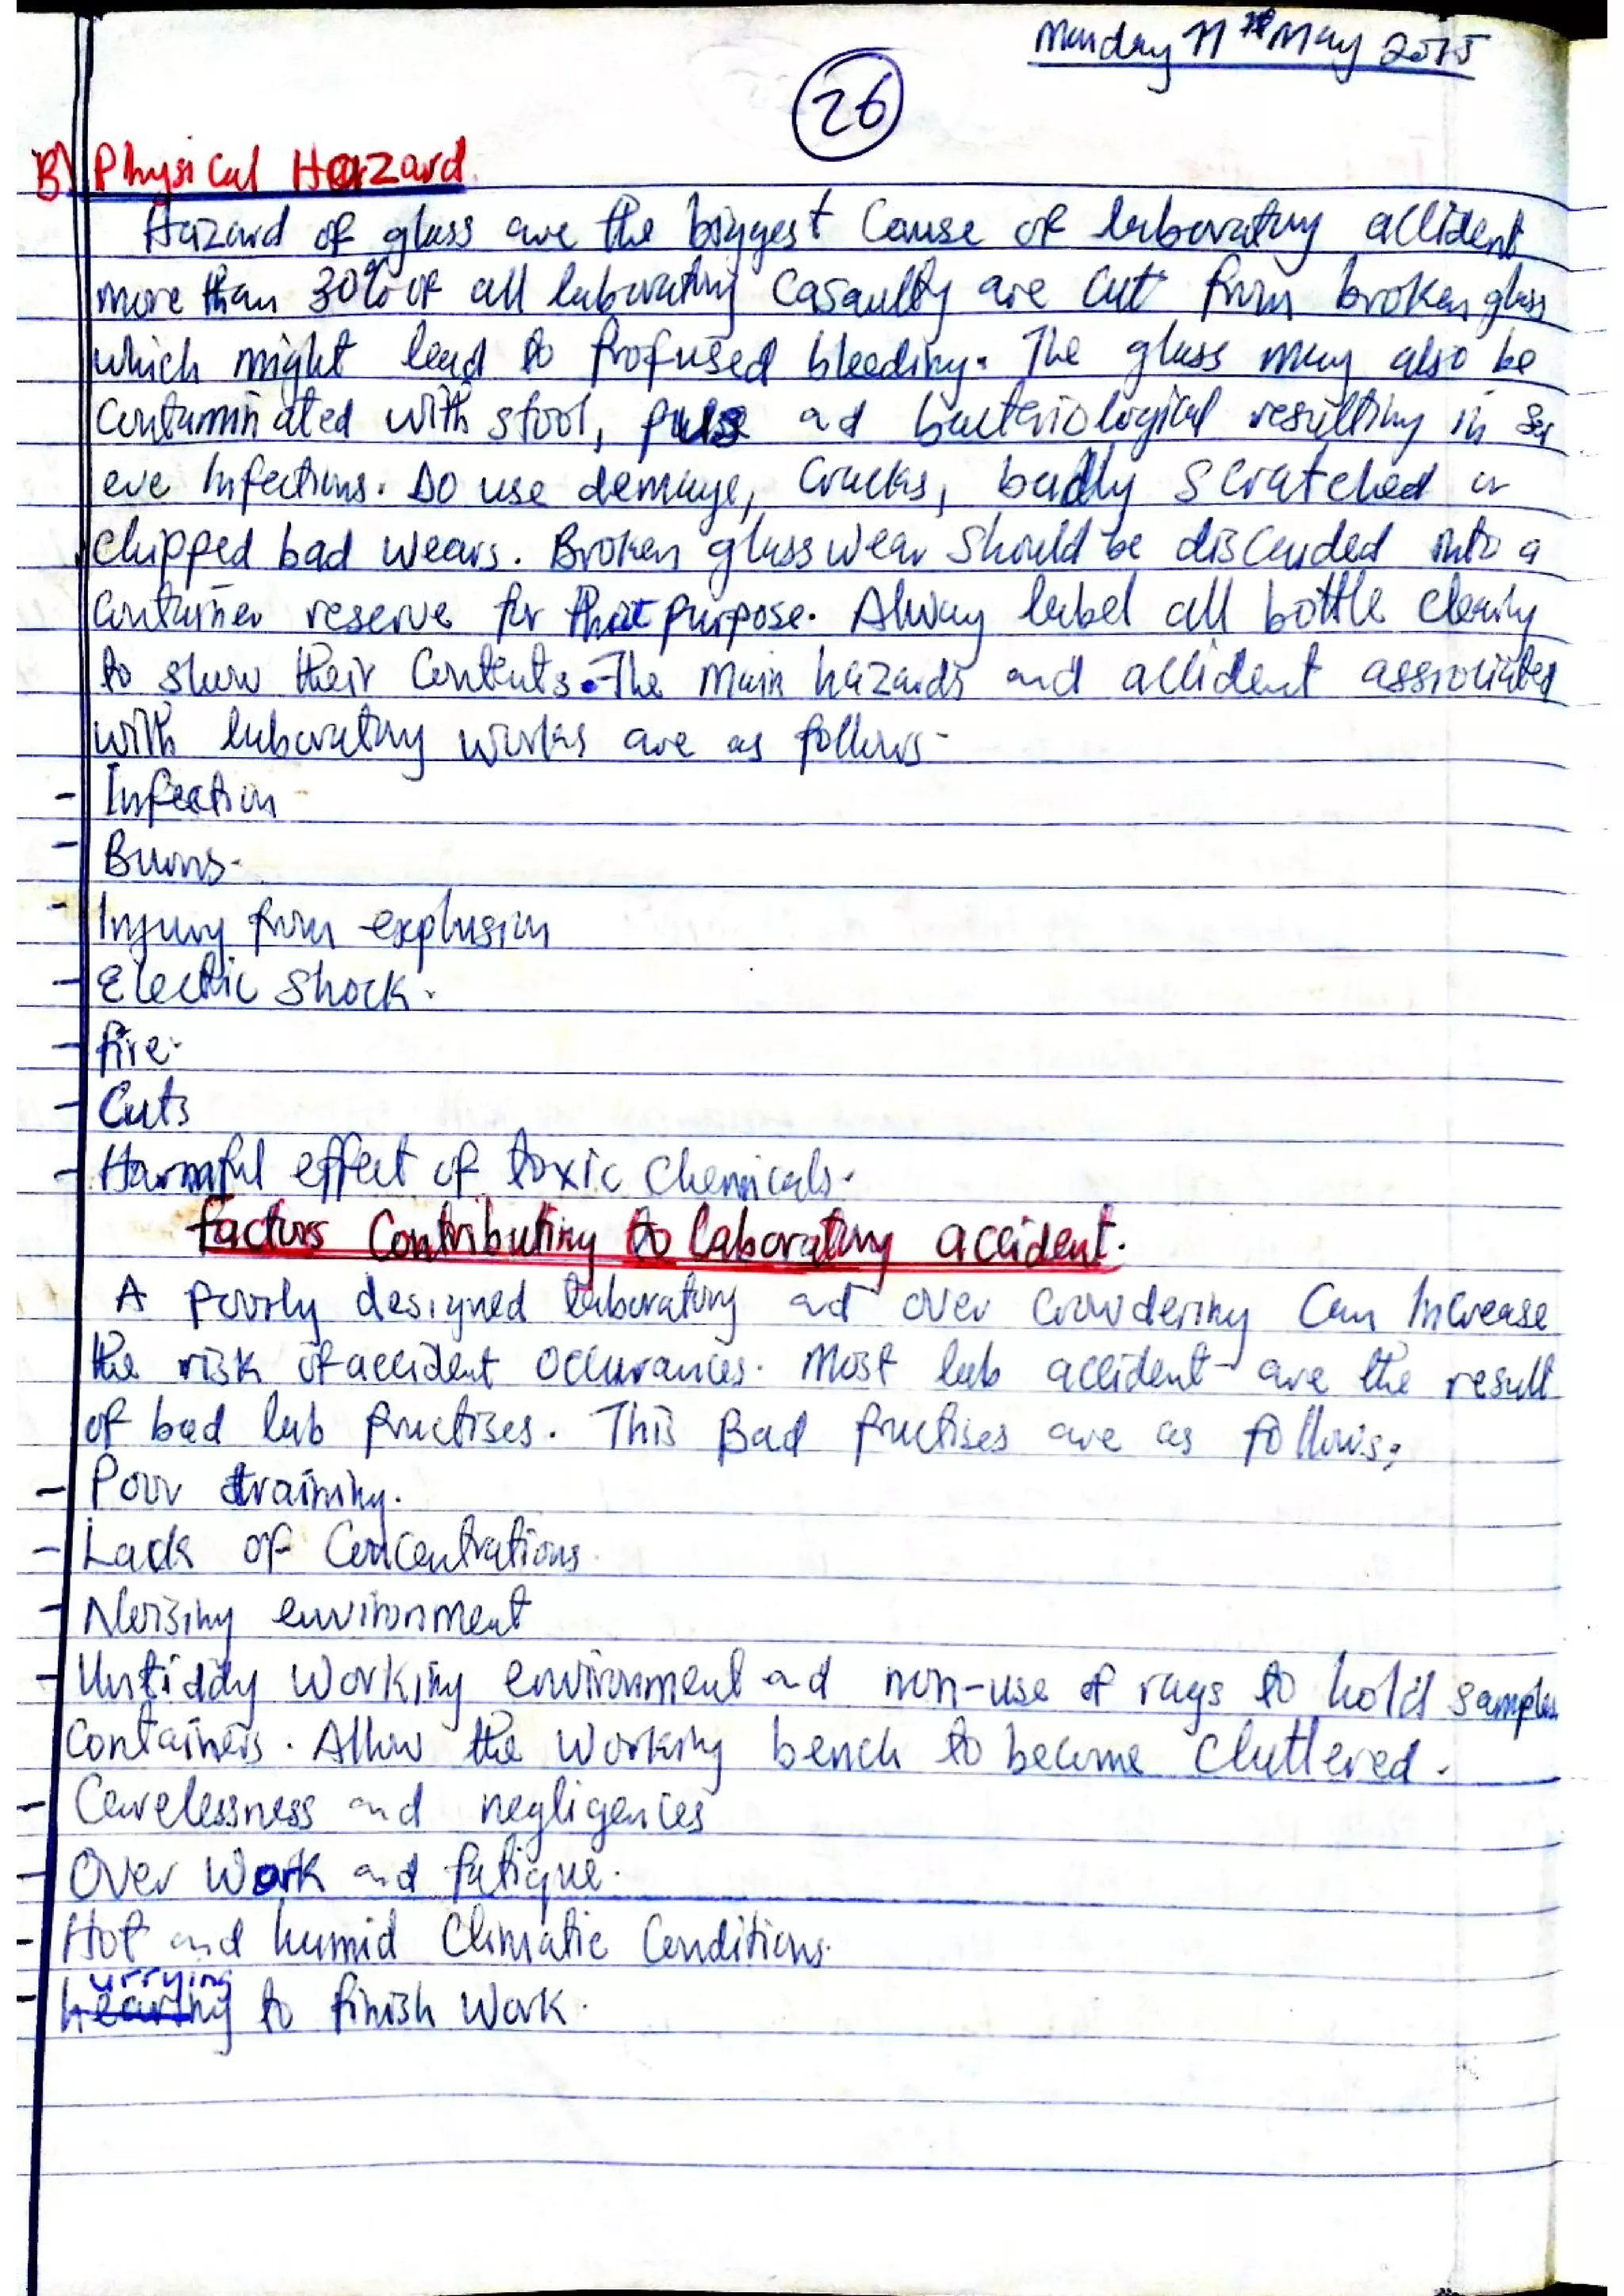 Monday 11th May 2015
26
B) Physical Hazard
Hazard of glass are the biggest Cause of laboratory accident
more than 30% of all laboratory Casaulty are Cut from broken glass
which might lead to Profused bleeding. The glass may also be
Contaminated with stool, pus ad bacteriological resulting in sev
ere Infections. Do use demage, Cracks, badly Scratched or
Chipped bad wears. Broken glass wear Should be discarded into a
Container reserve for that purpose. Alway label all bottle clearly
to show their Contents. The main hazards and accident assiociated
with laboratory works are as follows-
- Infection
- Burns.
- Injury from explosion
- Electric Shock.
- fire.
- Cuts
- Harmful effect of toxic Chemicals.
factors Contributing to laboratory accident.
A Poorly designed laboratory ad over Crowdering Can Increase
the risk of accident Occurances. Most lab accident are the result
of bad lab Practises. This Bad Practises are as follows;
- Poor training.
- Lack of Concentrations.
- Noising environment
- Untiddy Working environment ad non-use of rags to hold samples
Containers. Allow the Working bench to become Cluttered.
- Carelessness and negligences
- Over Work and fatigue.
- Hot and humid Climatic Conditions.
- hurrying to finish Work.